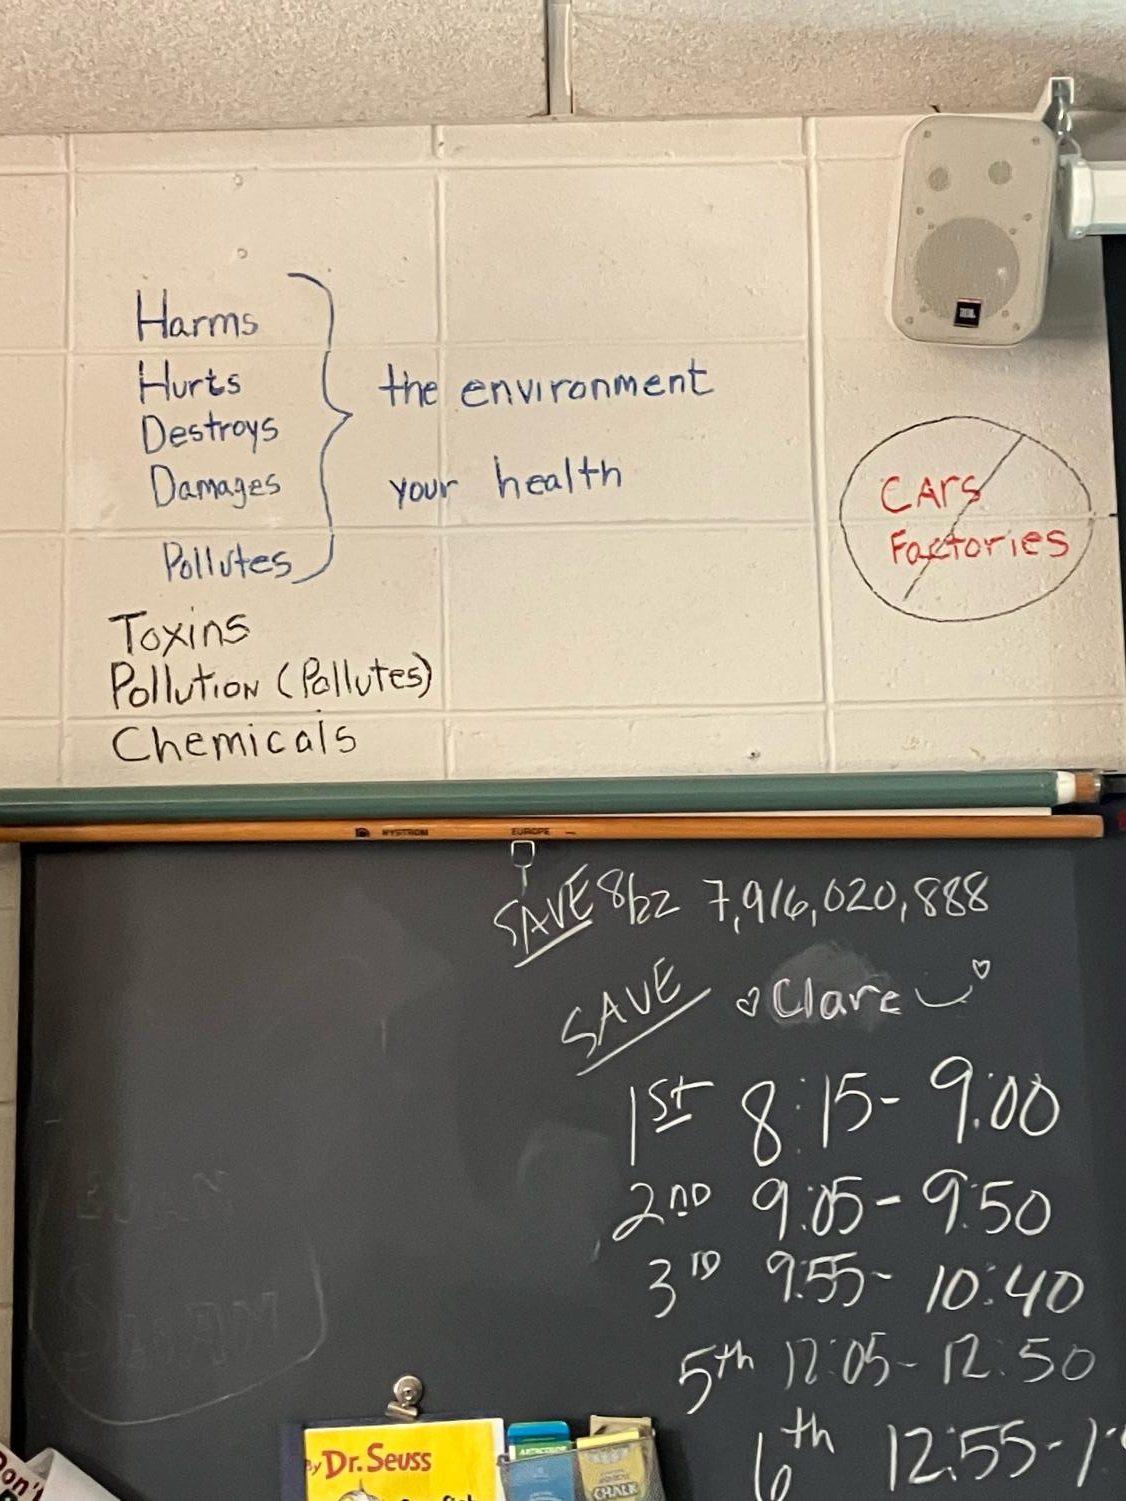 Harms
Hurts
Destroys
Damages
Pollutes
the environment
your health
Toxins
Pollution (Pollutes)
Chemicals
CArs
Factories
JBL
NYSTROM EUROPE
SAVE 8/22 7,916,020,888
SAVE Clare
1st 8:15 - 9:00
2ND 9:05 - 9:50
3rd 9:55 - 10:40
5th 12:05 - 12:50
6th 12:55 - 1:
By Dr. Seuss
CHALK
Don't